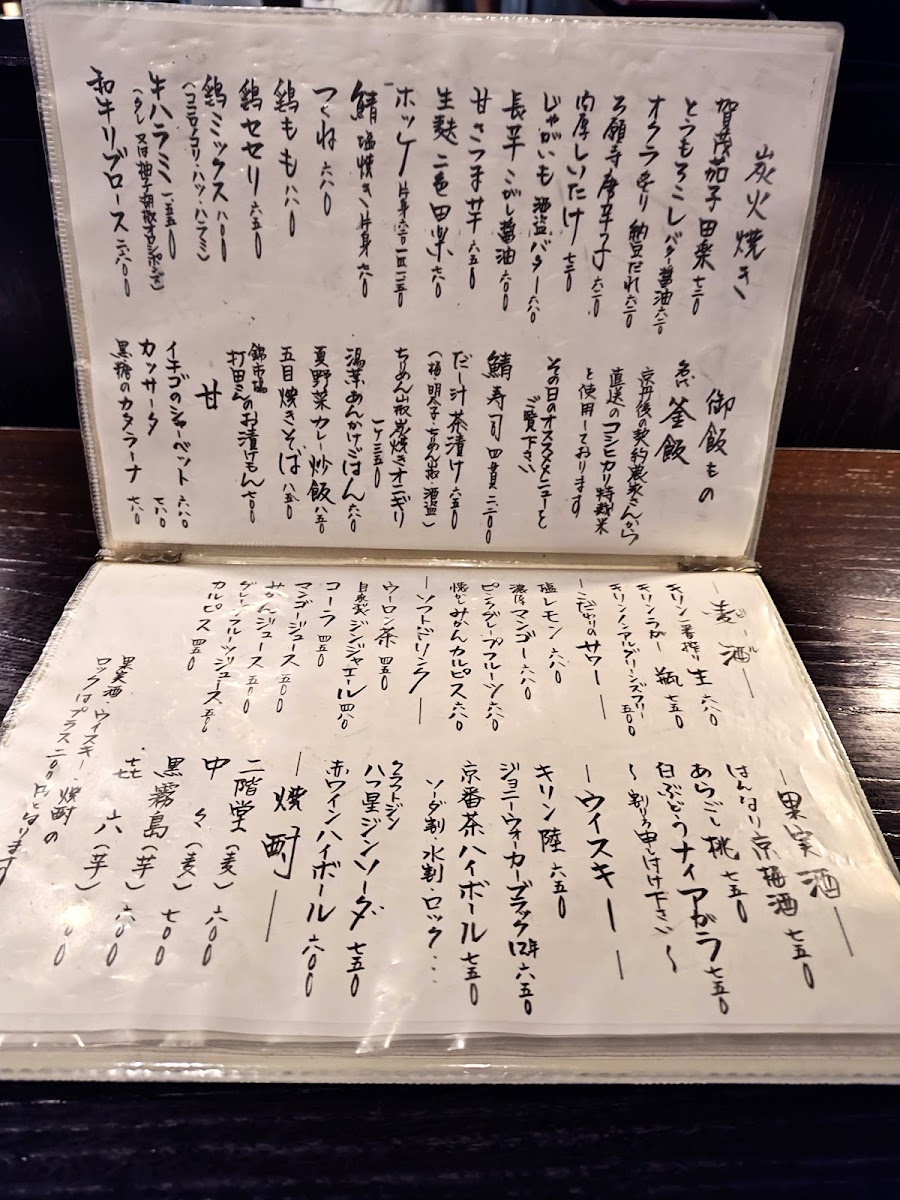 炭火焼き
賀茂茄子田楽 七二〇
とうもろこし バター醤油 六二〇
オクラ炙り 納豆だれ 六二〇
万願寺唐辛子 六二〇
肉厚しいたけ 七二〇
じゃがいも 酒盗バター 六八〇
長芋こがし醤油 六〇〇
甘さつま芋 六五〇
生麩二色田楽 七八〇
ホッケ
鯖塩焼き片身
つくね 六八〇
鶏もも 八八〇
鶏セセリ 六五〇
鶏ミックス 八〇〇
(ココロノコリ・ハツ・ハラミ)
牛ハラミ 一五五〇
和牛リブロース 二六八〇
御飯もの
釜飯
京丹後の契約農家さんから
直送のコシヒカリ特栽米
を使用しております
その日のオススメメニューを
ご覧下さい
鯖寿司 四貫 一二二〇
だし汁茶漬け 六五〇
(梅・明太子・ちりめん山椒・酒盗)
ちりめん山椒炭焼きオニギリ
一ケ 三五〇
湯葉あんかけごはん 六八〇
夏野菜カレー炒飯 八五〇
五目焼きそば 八五〇
錦市場
打田さんのお漬けもん 七〇〇
甘
イチゴのシャーベット 六八〇
カッサータ 七八〇
黒糖のカタラーナ 七八〇
―麦酒―
キリン一番搾り 生 六八〇
キリンラガー 瓶 七五〇
キリンノンアルグリーンズフリー 五〇〇
―こだわりのサワー―
塩レモン 六八〇
濃厚マンゴー 六八〇
ピンクグレープフルーツ 六八〇
懐かしみかんカルピス 六八〇
―ソフトドリンク―
ウーロン茶 四五〇
自家製ジンジャエール 四八〇
コーラ 四五〇
マンゴージュース 五〇〇
みかんジュース 五〇〇
グレープフルーツジュース 五〇〇
カルピス 四五〇
―果実酒―
はんなり京梅酒 七五〇
あらごし桃 七五〇
白ぶどうナイアガラ 七五〇
〜割り方申しつけ下さい〜
―ウイスキー―
キリン陸 六五〇
ジョニーウォーカーブラック12年 六五〇
京番茶ハイボール 七五〇
ソーダ割・水割・ロック…
クラフトジン
八つ星ジンソーダ 七五〇
赤ワインハイボール 六〇〇
―焼酎―
二階堂(麦) 六〇〇
中々(麦) 六〇〇
黒霧島(芋) 七〇〇
㐂六(芋) 六〇〇
果実酒・ウイスキー・焼酎の
ロックはプラス二〇〇円となります